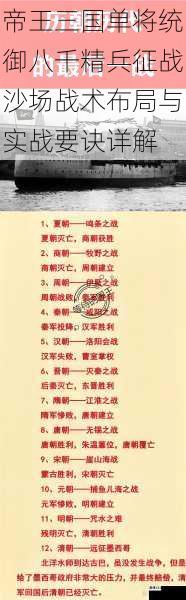 帝王三国单将统
御八千精兵征战
沙场战术布局与
实战要诀详解
1、夏朝——鸣条之战
夏朝灭亡，商朝获胜
2、商朝——牧野之战
商朝灭亡，周朝建立
3、周朝——伊阙之战
周朝战败，秦军胜利
4、秦朝——咸阳之战
秦军投降，汉军胜利
5、汉朝——洛阳会战
汉军失败，曹室掌权
6、晋朝——灭秦之战
后秦灭亡，东晋胜利
7、隋朝——江淮之战
隋军惨败，唐朝建立
8、唐朝——无锡之战
唐朝胜利，朱温篡位，唐朝覆亡
9、宋朝——崖山海战
蒙古胜利，宋朝灭亡
10、元朝——捕鱼儿海之战
元军惨败，明朝建立
11、明朝——咒水之难
残明灭亡，清朝胜利
12、清朝——远征墨西哥
北洋水师到达古巴，虽没发生战争，但是
给了墨西哥政府非常大的压力，并最终赔偿，清
军回国后清朝已经灭亡。